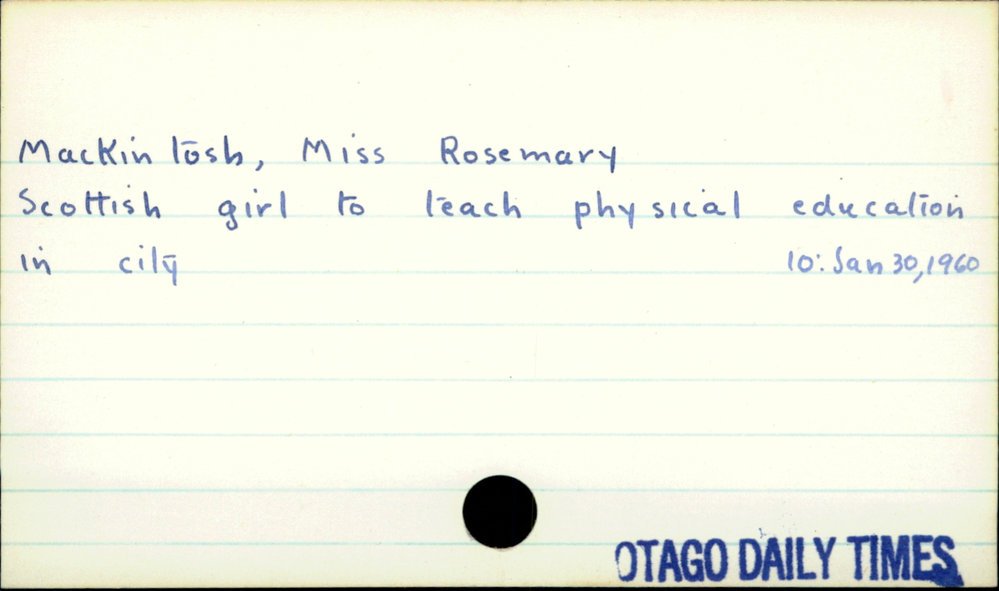 Mackintosh, Miss Rosemary
Scottish girl to teach physical education
in city 10: Jan 30, 1960
OTAGO DAILY TIMES